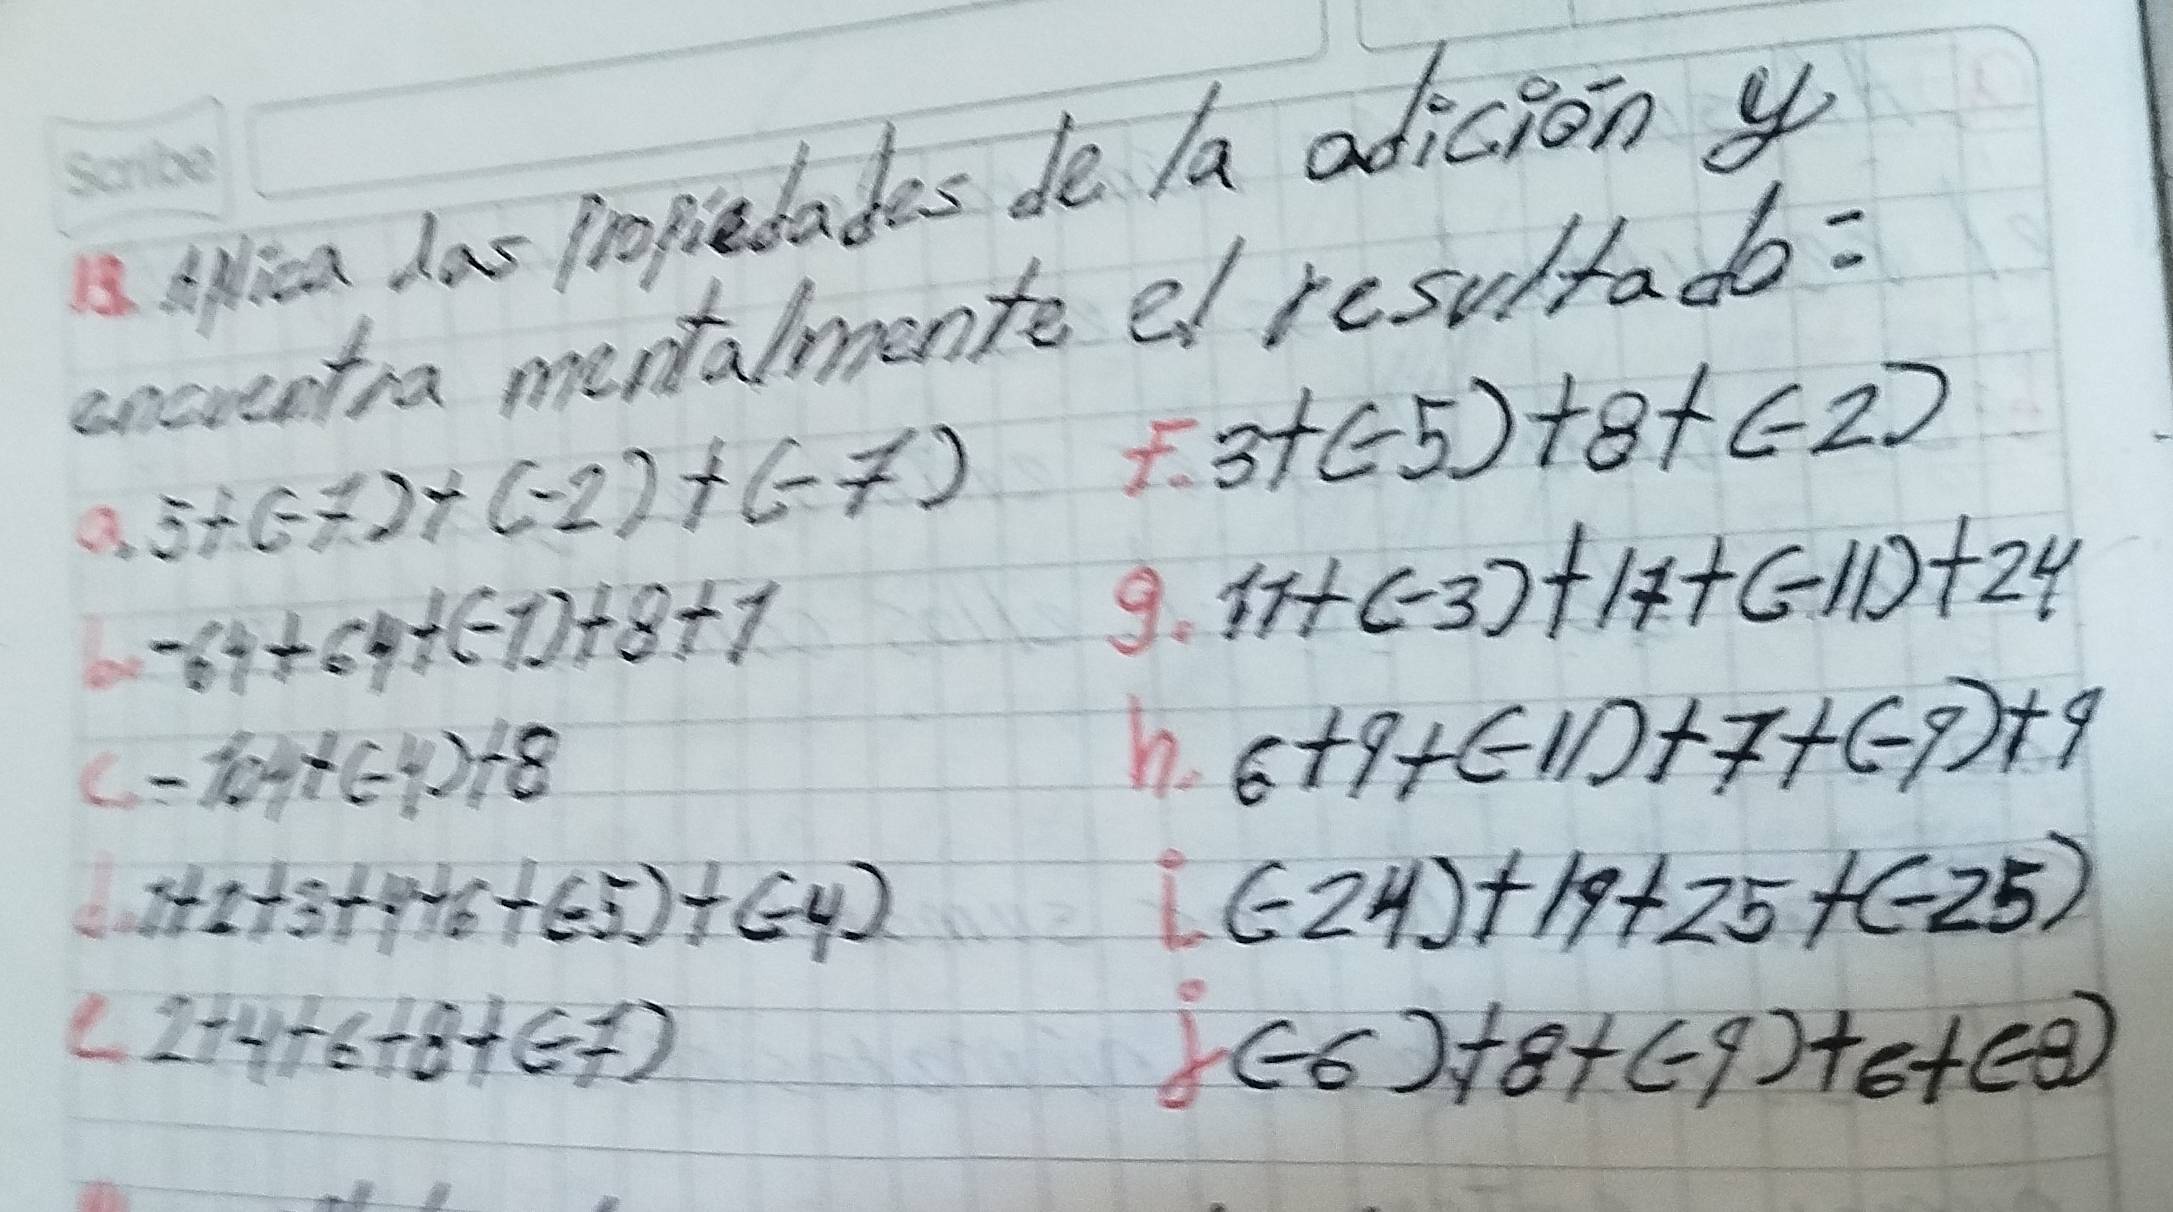 Scribe
13. Aplica las propiedades de la adición y
encuentra mentalmente el resultado=
a. 5+(-7)+(-2)+(-7)
f. 3+(-5)+8+(-2)
b. -64+64+(-1)+8+1
g. 11+(-3)+17+(-11)+24
c. -104+(-4)+8
h. 6+9+(-11)+7+(-9)+9
d. 1+2+3+4+6+(-5)+(-4)
i. (-24)+19+25+(-25)
e 2+4+6+8+(-7)
j (-6)+8+(-9)+6+(-8)